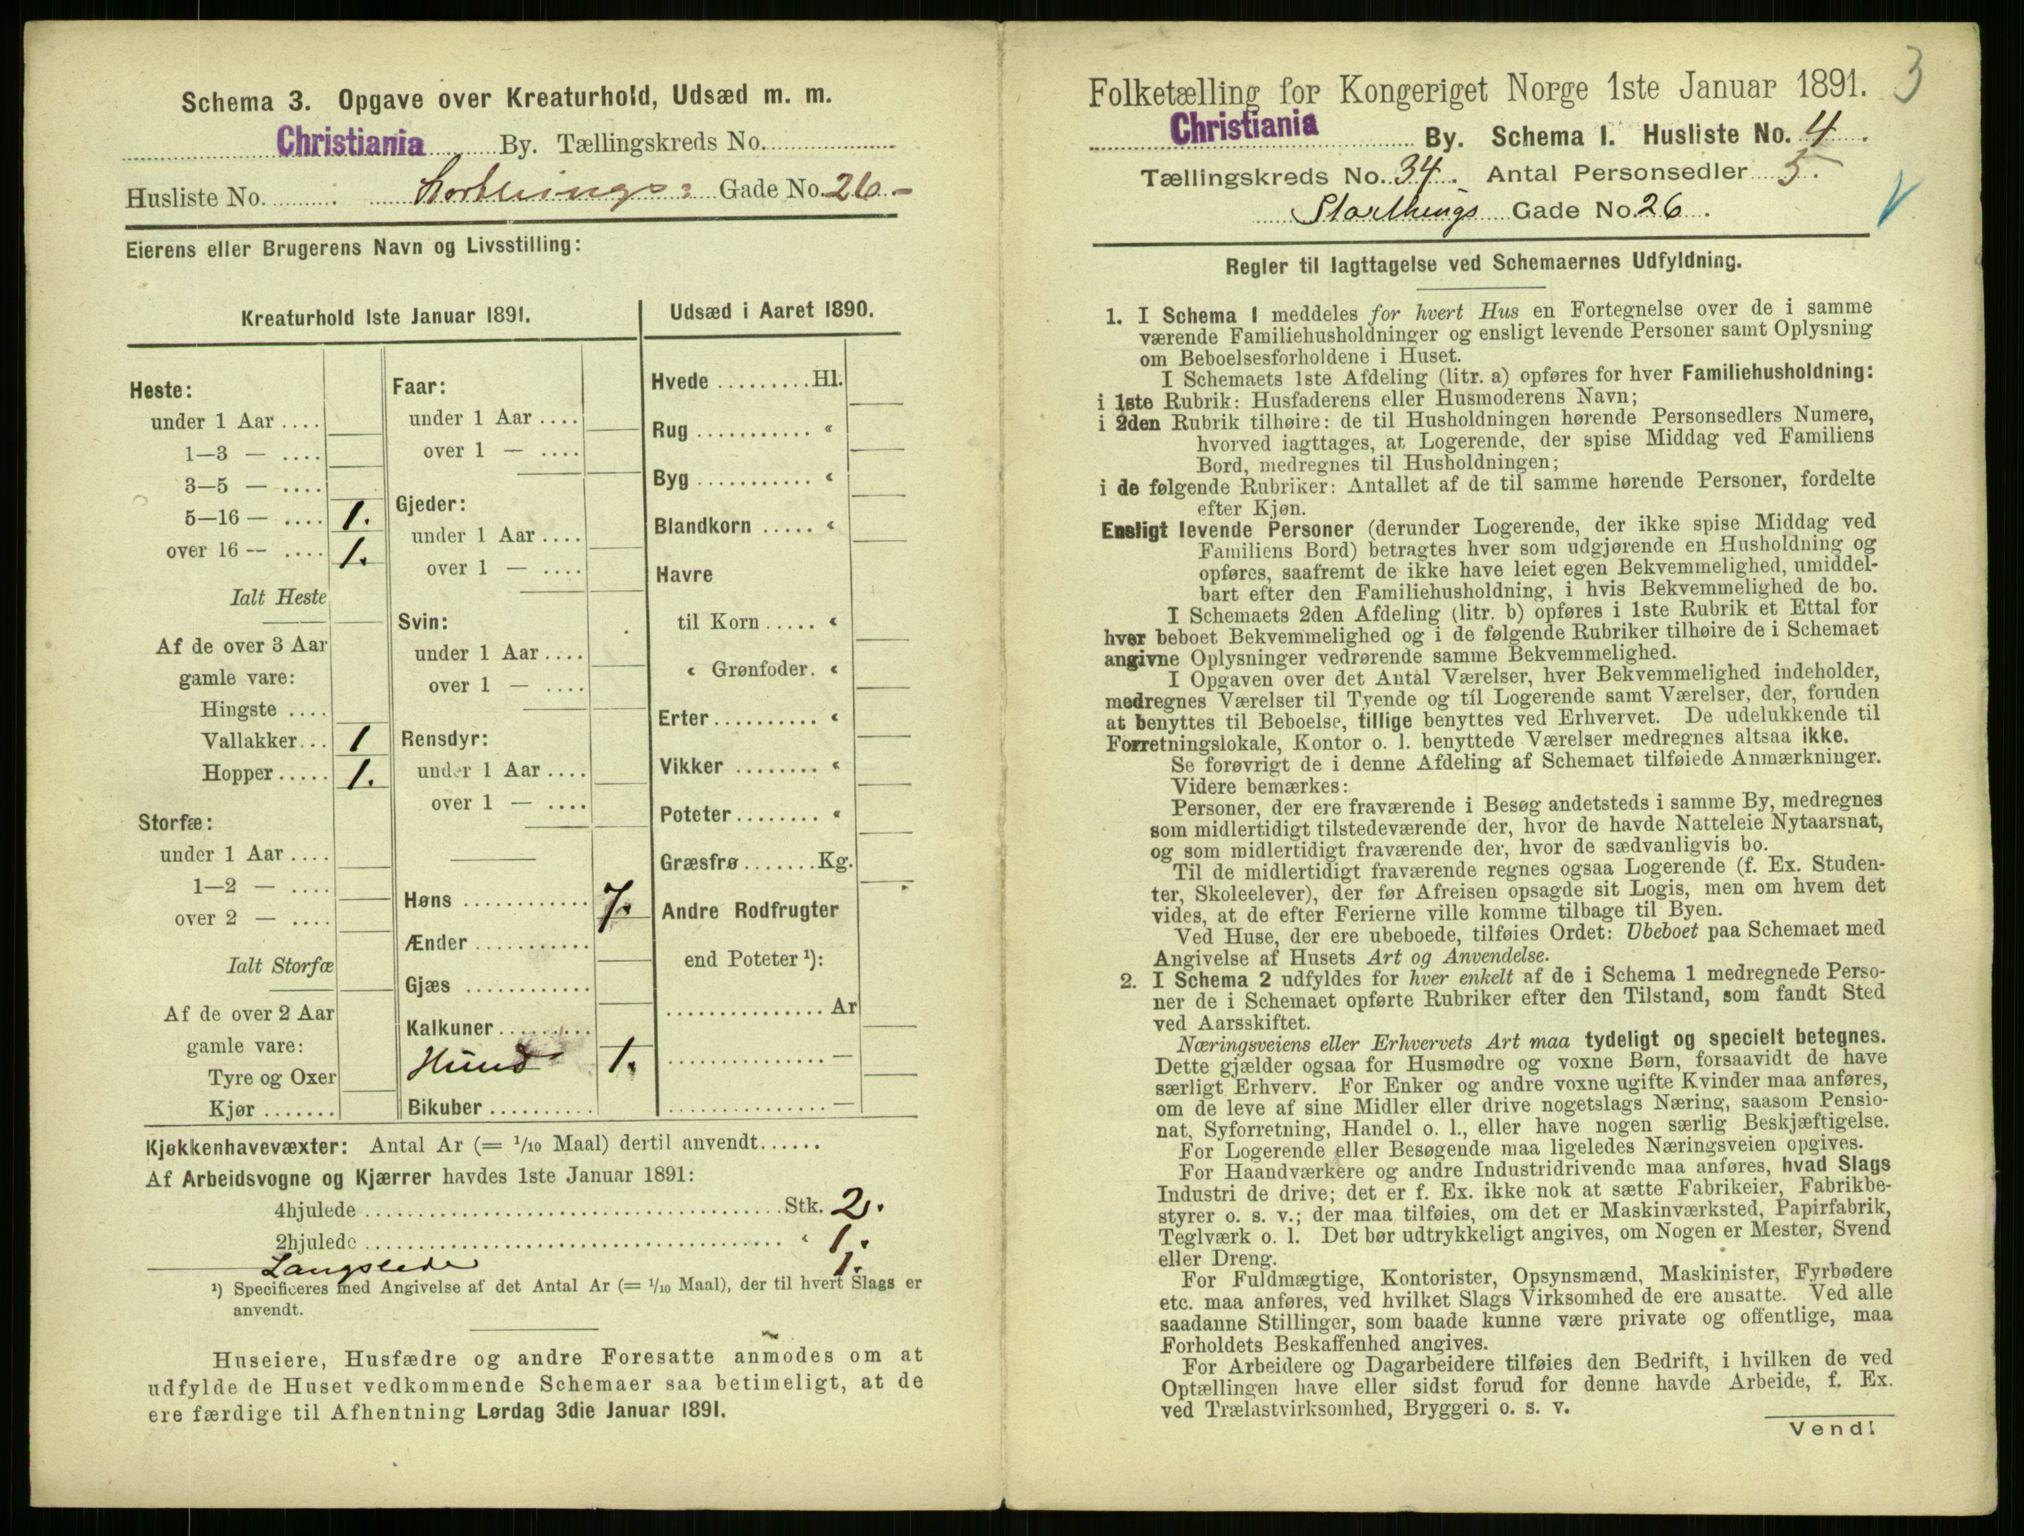 Schema 3. Opgave over Kreaturhold, Udsæd m. m.
Christiania By. Tællingskreds No.
Husliste No. Storthings= Gade No. 26
Eierens eller Brugerens Navn og Livsstilling:
Kreaturhold 1ste Januar 1891.
Heste:
under 1 Aar ....
1—3 — ....
3—5 — ....
5—16 — .... 1.
over 16 — .... 1.
Ialt Heste
Af de over 3 Aar
gamle vare:
Hingste ....
Vallakker... 1
Hopper..... 1.
Storfæ:
under 1 Aar ....
1—2 — ....
over 2 — ....
Ialt Storfæ
Af de over 2 Aar
gamle vare:
Tyre og Oxer
Kjør .......
Faar:
under 1 Aar ....
over 1 — ....
Gjeder:
under 1 Aar ....
over 1 — ....
Svin:
under 1 Aar ....
over 1 — ....
Rensdyr:
under 1 Aar ....
over 1 — ....
Høns ............ 7.
Ænder ...........
Gjæs ............
Kalkuner .........
Hund 1.
Bikuber ..........
Udsæd i Aaret 1890.
Hvede .........Hl.
Rug ........... "
Byg ........... "
Blandkorn ..... "
Havre
til Korn ..... "
" Grønfoder. "
Erter .......... "
Vikker ........ "
Poteter........ "
Græsfrø .......Kg.
Andre Rodfrugter
end Poteter ¹):
............... Ar
............... —
............... —
Kjøkkenhavevæxter: Antal Ar (= 1/10 Maal) dertil anvendt......
Af Arbeidsvogne og Kjærrer havdes 1ste Januar 1891:
4hjulede ........................................Stk. 2.
2hjulede ........................................ " 1.
Langslede 1.
¹) Specificeres med Angivelse af det Antal Ar (= 1/10 Maal), der til hvert Slags er
anvendt.
Huseiere, Husfædre og andre Foresatte anmodes om at
udfylde de Huset vedkommende Schemaer saa betimeligt, at de
ere færdige til Afhentning Lørdag 3die Januar 1891.
3
Folketælling for Kongeriget Norge 1ste Januar 1891.
Christiania By. Schema 1. Husliste No. 4.
Tællingskreds No. 34. Antal Personsedler 5.
Storthings Gade No. 26.
Regler til Iagttagelse ved Schemaernes Udfyldning.
1. I Schema 1 meddeles for hvert Hus en Fortegnelse over de i samme
værende Familiehusholdninger og ensligt levende Personer samt Oplysning
om Beboelsesforholdene i Huset.
I Schemaets 1ste Afdeling (litr. a) opføres for hver Familiehusholdning:
i 1ste Rubrik: Husfaderens eller Husmoderens Navn;
i 2den Rubrik tilhøire: de til Husholdningen hørende Personsedlers Numere,
hvorved iagttages, at Logerende, der spise Middag ved Familiens
Bord, medregnes til Husholdningen;
i de følgende Rubriker: Antallet af de til samme hørende Personer, fordelte
efter Kjøn.
Ensligt levende Personer (derunder Logerende, der ikke spise Middag ved
Familiens Bord) betragtes hver som udgjørende en Husholdning og
opføres, saafremt de ikke have leiet egen Bekvemmelighed, umiddel-
bart efter den Familiehusholdning, i hvis Bekvemmelighed de bo.
I Schemaets 2den Afdeling (litr. b) opføres i 1ste Rubrik et Ettal for
hver beboet Bekvemmelighed og i de følgende Rubriker tilhøire de i Schemaet
angivne Oplysninger vedrørende samme Bekvemmelighed.
I Opgaven over det Antal Værelser, hver Bekvemmelighed indeholder,
medregnes Værelser til Tyende og til Logerende samt Værelser, der, foruden
at benyttes til Beboelse, tillige benyttes ved Erhvervet. De udelukkende til
Forretningslokale, Kontor o. l. benyttede Værelser medregnes altsaa ikke.
Se forøvrigt de i denne Afdeling af Schemaet tilføiede Anmærkninger.
Videre bemærkes:
Personer, der ere fraværende i Besøg andetsteds i samme By, medregnes
som midlertidigt tilstedeværende der, hvor de havde Natteleie Nytaarsnat,
og som midlertidigt fraværende der, hvor de sædvanligvis bo.
Til de midlertidigt fraværende regnes ogsaa Logerende (f. Ex. Studen-
ter, Skoleelever), der før Afreisen opsagde sit Logis, men om hvem det
vides, at de efter Ferierne ville komme tilbage til Byen.
Ved Huse, der ere ubeboede, tilføies Ordet: Ubeboet paa Schemaet med
Angivelse af Husets Art og Anvendelse.
2. I Schema 2 udfyldes for hver enkelt af de i Schema 1 medregnede Perso-
ner de i Schemaet opførte Rubriker efter den Tilstand, som fandt Sted
ved Aarsskiftet.
Næringsveiens eller Erhvervets Art maa tydeligt og specielt betegnes.
Dette gjælder ogsaa for Husmødre og voxne Børn, forsaavidt de have
særligt Erhverv. For Enker og andre voxne ugifte Kvinder maa anføres,
om de leve af sine Midler eller drive nogetslags Næring, saasom Pensio-
nat, Syforretning, Handel o. l., eller have nogen særlig Beskjæftigelse.
For Logerende eller Besøgende maa ligeledes Næringsveien opgives.
For Haandværkere og andre Industridrivende maa anføres, hvad Slags
Industri de drive; det er f. Ex. ikke nok at sætte Fabrikeier, Fabrikbe-
styrer o. s. v.; der maa tilføies, om det er Maskinværksted, Papirfabrik,
Teglværk o. l. Det bør udtrykkeligt angives, om Nogen er Mester, Svend
eller Dreng.
For Fuldmægtige, Kontorister, Opsynsmænd, Maskinister, Fyrbødere
etc. maa anføres, ved hvilket Slags Virksomhed de ere ansatte. Ved alle
saadanne Stillinger, som baade kunne være private og offentlige, maa
Forholdets Beskaffenhed angives.
For Arbeidere og Dagarbeidere tilføies den Bedrift, i hvilken de ved
Optællingen have eller sidst forud for denne havde Arbeide, f. Ex.
ved Trælastvirksomhed, Bryggeri o. s. v.
Vend!